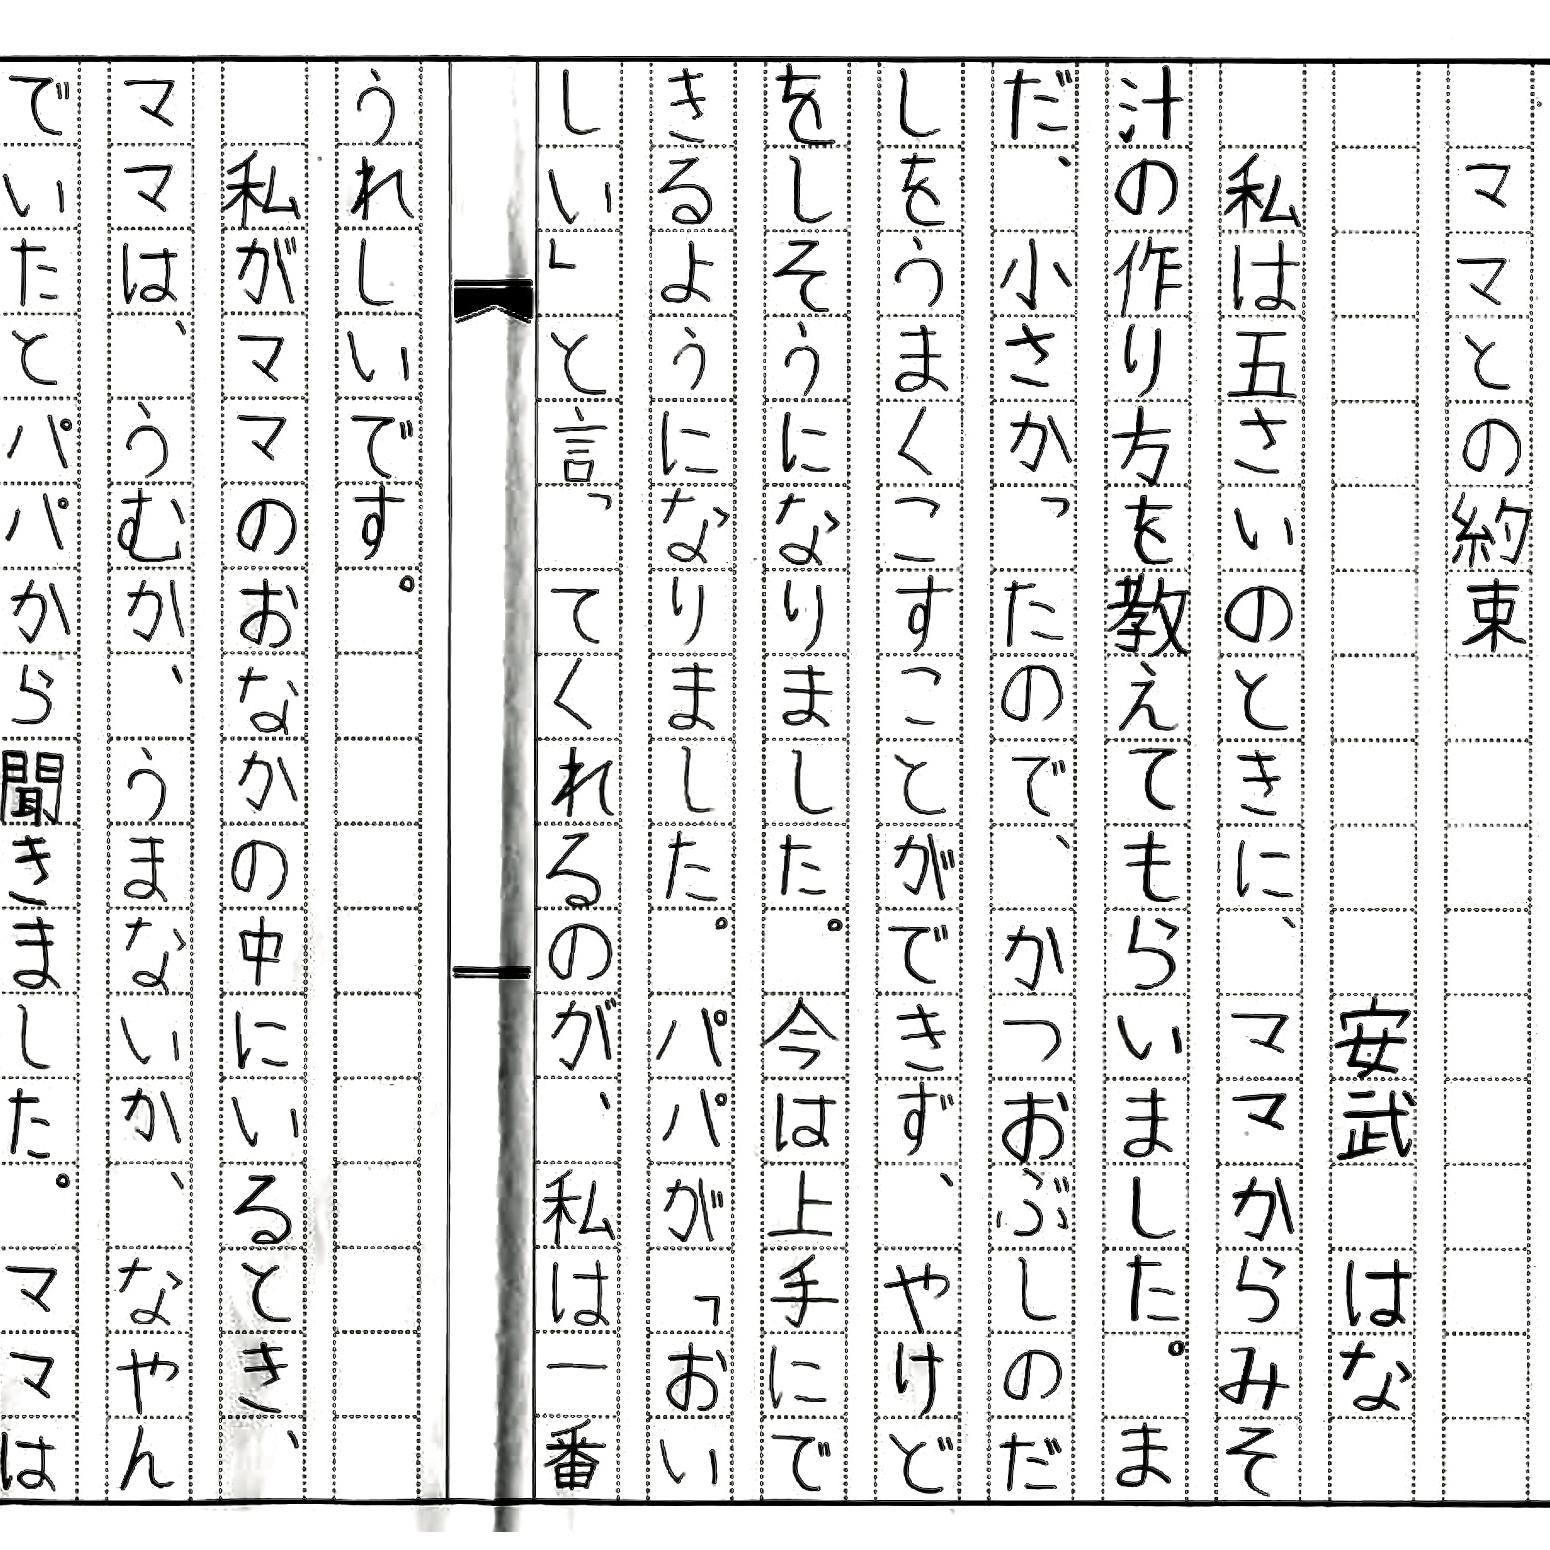 ママとの約束
安武 はな
私は五さいのときに、ママからみそ
汁の作り方を教えてもらいました。ま
だ、小さかったので、かつおぶしのだ
しをうまくこすことができず、やけど
をしそうになりました。今は上手にで
きるようになりました。パパが「おい
しい」と言ってくれるのが、私は一番
うれしいです。
私がママのおなかの中にいるとき、
ママは、うむか、うまないか、なやん
でいたとパパから聞きました。ママは